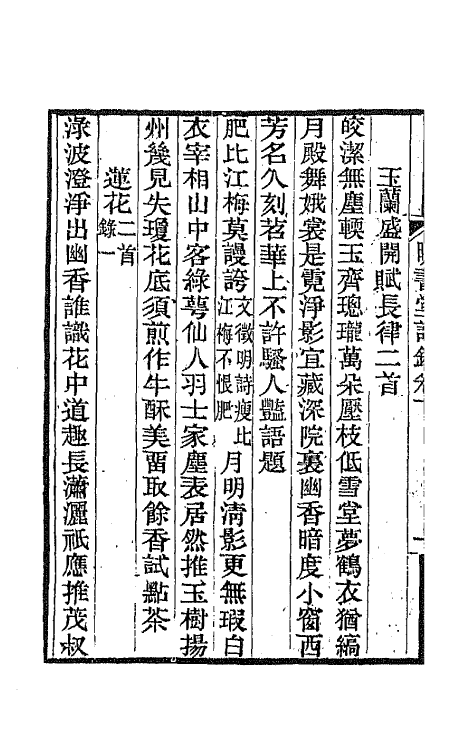 玉蘭盛開賦長律二首
皎潔無塵輭玉齊璁瓏萬朵壓枝低雪堂夢鶴衣猶縞
月殿舞娥裳是霓淨影宜藏深院裏幽香暗度小窗西
芳名久刻苕華上不許騷人豔語題
肥比江梅莫謾誇文徵明詩瘦比江梅不恨肥月明淸影更無瑕白
衣宰相山中客綠萼仙人羽士家塵表居然推玉樹揚
州幾見失瓊花底須煎作牛酥美畱取餘香試點茶
蓮花二首錄一
淥波澄淨出幽香誰識花中道趣長瀟灑祇應推茂叔